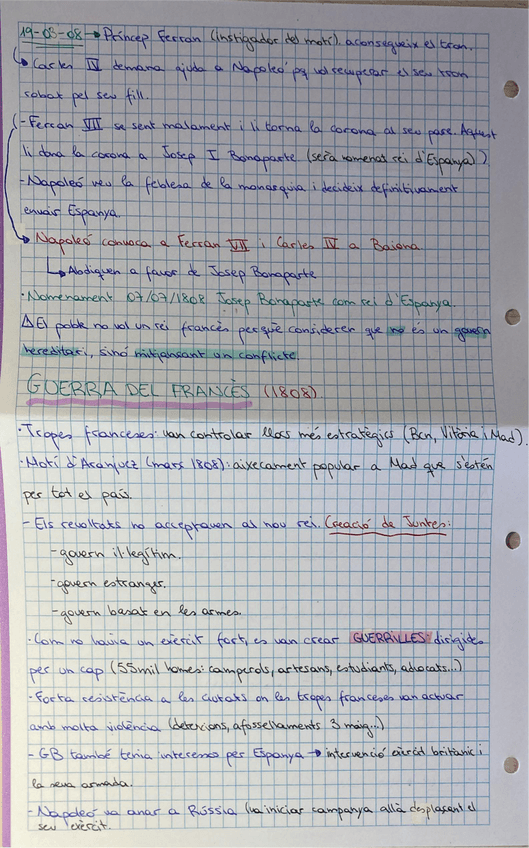 19-03-08 → Príncep Ferran (instigador del motí) aconsegueix el tron.
↳ Carles IV demana ajuda a Napoleó pq vol recuperar el seu tron
robat pel seu fill.
- Ferran VII se sent malament i li torna la corona al seu pare. Aquest
li dona la corona a Josep I Bonaparte (serà nomenat rei d'Espanya)
- Napoleó veu la feblesa de la monarquia i decideix definitivament
envair Espanya.
→ Napoleó convoca a Ferran VII i Carles IV a Baiona
↳ Abdiquen a favor de Josep Bonaparte
· Nomenament 07/07/1808 Josep Bonaparte com rei d'Espanya.
△ El poble no vol un rei francès perquè consideren que no és un govern
hereditari, sinó mitjansant un conflicte.
GUERRA DEL FRANCÈS (1808)
· Tropes franceses: van controlar llocs més estratègics (Bcn, Vitòria i Mad).
· Motí d'Aranjuez (març 1808): aixecament popular a Mad que s'estén
per tot el país.
- Els revoltats no acceptaven al nou rei. Creació de Juntes:
- govern il·legítim.
- govern estranger.
- govern basat en les armes.
· Com no havia un exèrcit fort, es van crear GUERRILLES: dirigides
per un cap (55mil homes: camperols, artesans, estudiants, advocats...)
· Forta resistència a les ciutats on les tropes franceses van actuar
amb molta violència (detencions, afossellaments 3 maig...)
- GB també tenia interessos per Espanya → intervenció exèrcit britànic i
la seva armada.
- Napoleó va anar a Rússia (va iniciar campanya allà desplaçant el
seu exèrcit.